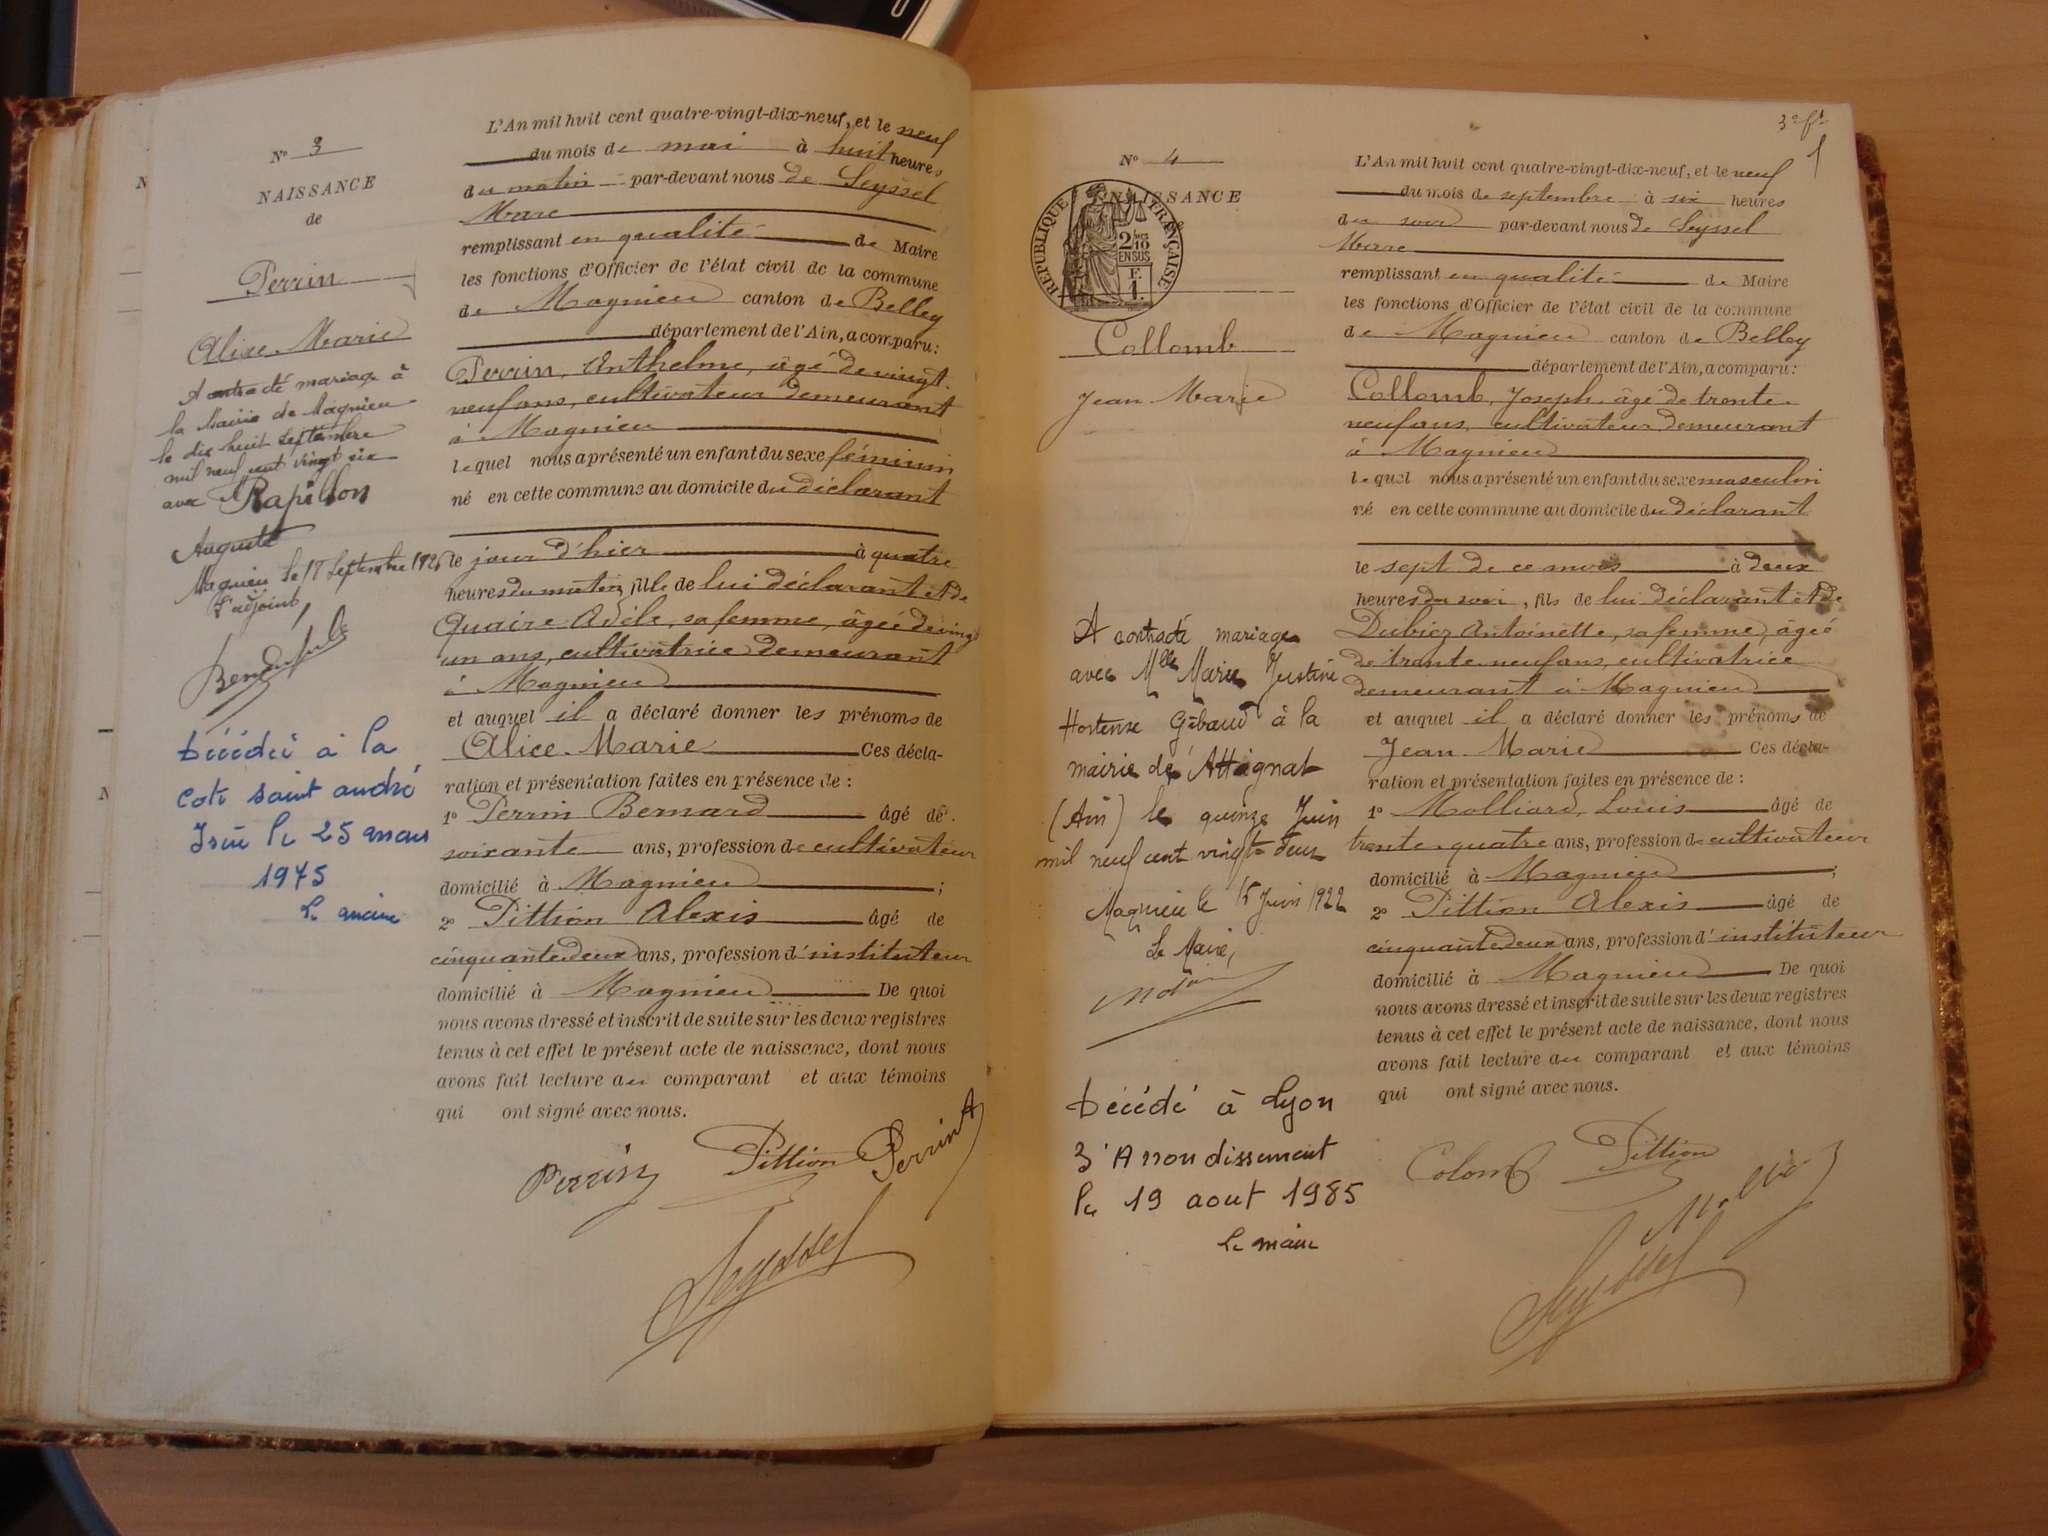 N° 3
NAISSANCE
de
Perrin
Alice Marie
A contracté mariage à
la Mairie de Magnieu
le dix huit Septembre
mil neuf cent vingt six
avec Rapillon
Auguste
Magnieu le 18 Septembre 1926
L'adjoint,
Décédée à la
cote saint andré
Isère le 25 mars
1975
Le maire
L'An mil huit cent quatre-vingt-dix-neuf, et le neuf
du mois de mai à huit heures
du matin par-devant nous de Seyssel
Marc
remplissant en qualité de Maire
les fonctions d'Officier de l'état civil de la commune
de Magnieu canton de Belley
département de l'Ain, a comparu:
Perrin, Anthelme, âgé de vingt-
neuf ans, cultivateur demeurant
à Magnieu
lequel nous a présenté un enfant du sexe féminin
né en cette commune au domicile du déclarant
le jour d'hier à quatre
heures du matin, fille de lui déclarant et de
Quaire Adèle, sa femme, âgée de vingt
un ans, cultivatrice demeurant
à Magnieu
et auquel il a déclaré donner les prénoms de
Alice Marie Ces décla-
ration et présentation faites en présence de :
1° Perrin Bernard âgé de
soixante ans, profession de cultivateur
domicilié à Magnieu ;
2° Pittion Alexis âgé de
cinquante deux ans, profession d'instituteur
domicilié à Magnieu De quoi
nous avons dressé et inscrit de suite sur les deux registres
tenus à cet effet le présent acte de naissance, dont nous
avons fait lecture au comparant et aux témoins
qui ont signé avec nous.
Perrin Pittion Perrin A
Seyssel
3e ft
N° 4
NAISSANCE
RÉPUBLIQUE FRANÇAISE
2 10
EN SUS
F.
1.
Collomb
Jean Marie
A contracté mariage
avec Mlle Marie Justine
Hortense Gébaud à la
mairie de Attignat
(Ain) le quinze Juin
mil neuf cent vingt-deux
Magnieu le 15 Juin 1922
Le Maire,
Décédé à Lyon
3e Arrondissement
le 19 aout 1985
Le maire
L'An mil huit cent quatre-vingt-dix-neuf, et le neuf
du mois de septembre à six heures
du soir par-devant nous de Seyssel
Marc
remplissant en qualité de Maire
les fonctions d'Officier de l'état civil de la commune
de Magnieu canton de Belley
département de l'Ain, a comparu:
Collomb, Joseph âgé de trente-
neuf ans, cultivateur demeurant
à Magnieu
lequel nous a présenté un enfant du sexe masculin
né en cette commune au domicile du déclarant
le sept de ce mois à deux
heures du soir, fils de lui déclarant et de
Dubiez Antoinette, sa femme, âgée
de trente-neuf ans, cultivatrice
demeurant à Magnieu
et auquel il a déclaré donner les prénoms de
Jean Marie Ces décla-
ration et présentation faites en présence de :
1° Molliard, Louis âgé de
trente-quatre ans, profession de cultivateur
domicilié à Magnieu ;
2° Pittion Alexis âgé de
cinquante deux ans, profession d'instituteur
domicilié à Magnieu De quoi
nous avons dressé et inscrit de suite sur les deux registres
tenus à cet effet le présent acte de naissance, dont nous
avons fait lecture au comparant et aux témoins
qui ont signé avec nous.
Colomb Pittion
Seyssel